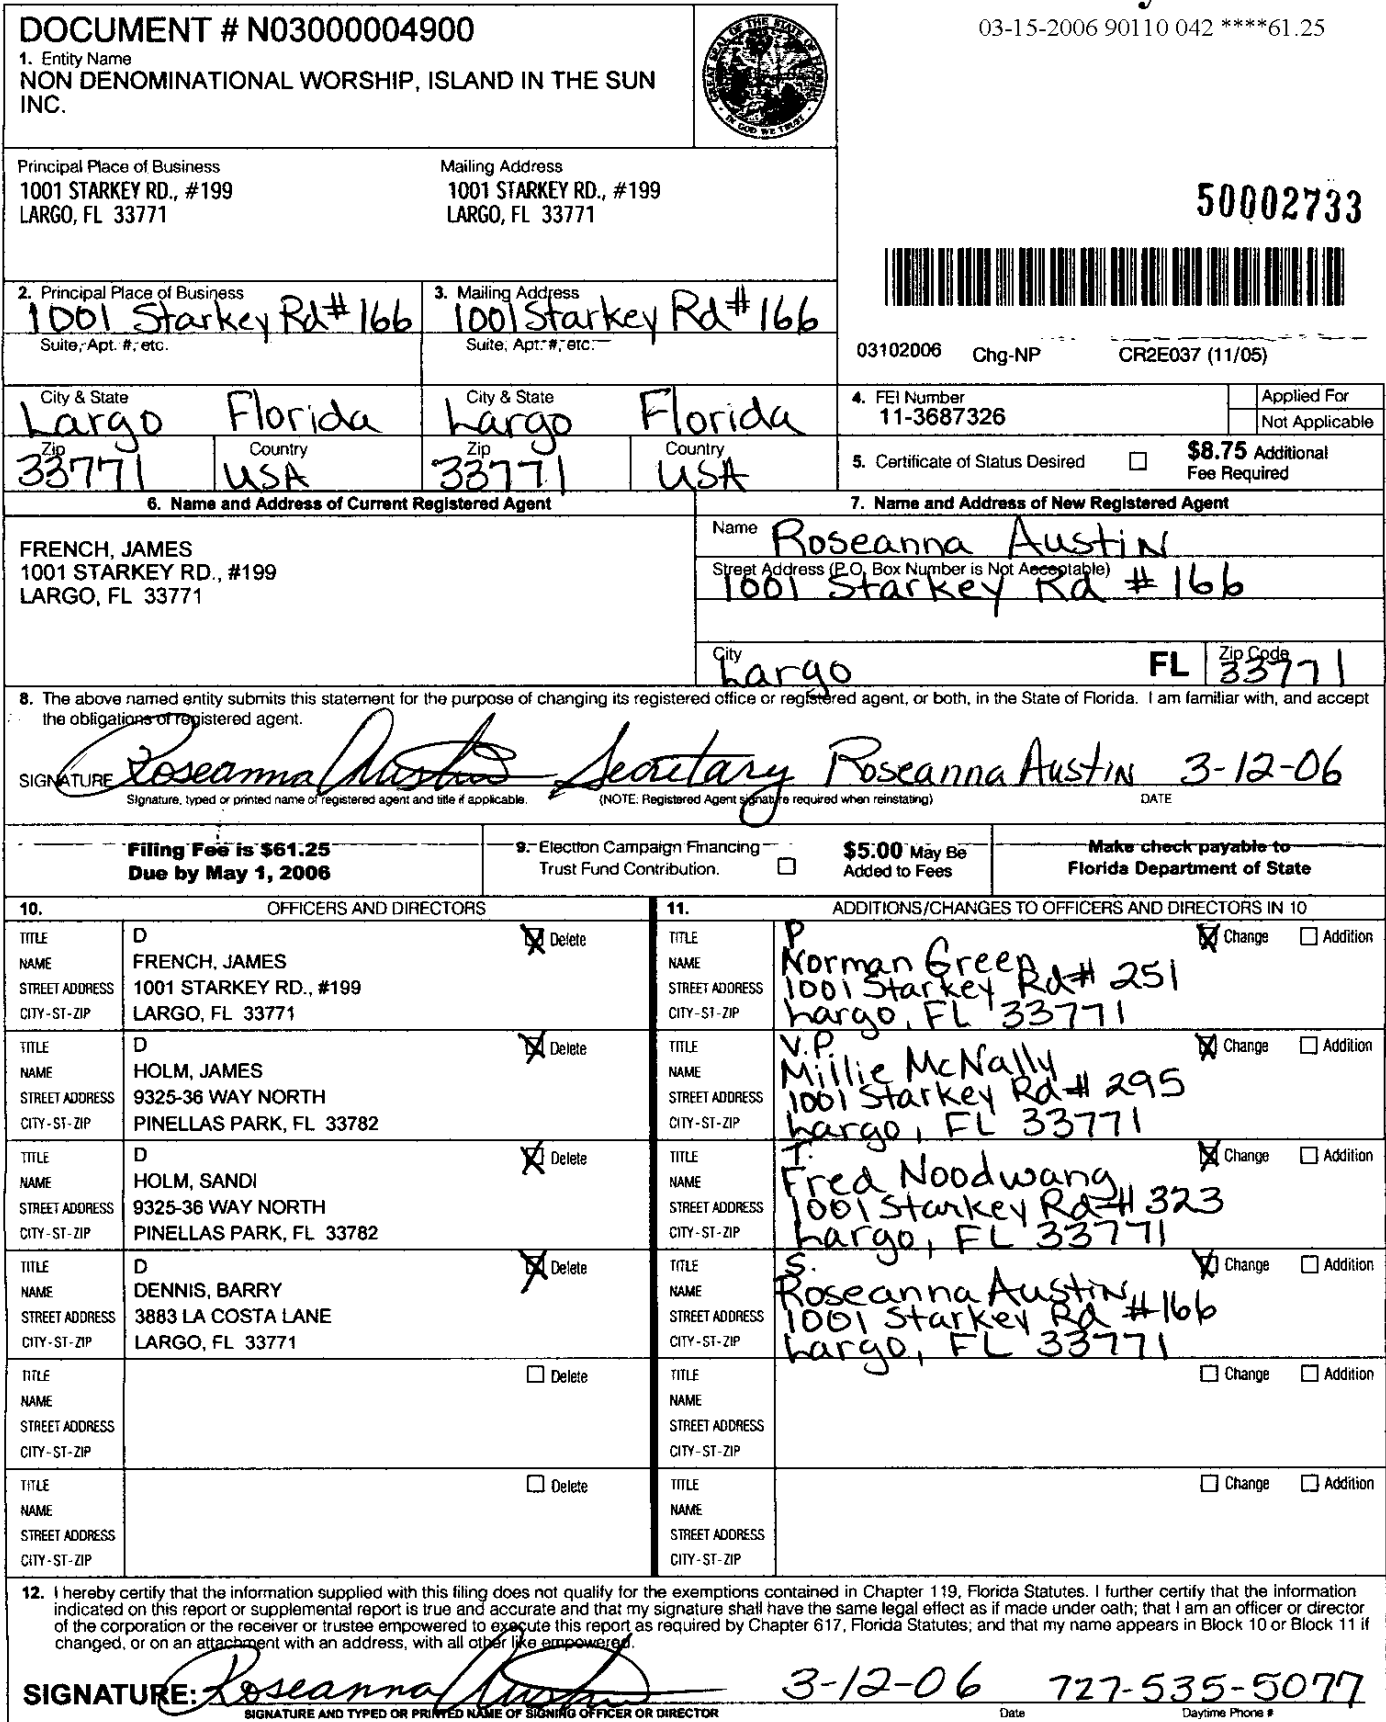 03-15-2006 90110 042 ****61.25
DOCUMENT # N03000004900
1. Entity Name
NON DENOMINATIONAL WORSHIP, ISLAND IN THE SUN
INC.
GREAT SEAL OF THE STATE OF FLORIDA
IN GOD WE TRUST
Principal Place of Business
1001 STARKEY RD., #199
LARGO, FL 33771
Mailing Address
1001 STARKEY RD., #199
LARGO, FL 33771
50002733
2. Principal Place of Business
1001 Starkey Rd # 166
3. Mailing Address
1001 Starkey Rd # 166
Suite, Apt. #, etc.
Suite, Apt. #, etc.
03102006 Chg-NP CR2E037 (11/05)
City & State
Largo Florida
City & State
Largo Florida
Zip
33771
Country
USA
Zip
33771
Country
USA
4. FEI Number
11-3687326
Applied For
Not Applicable
5. Certificate of Status Desired
$8.75 Additional
Fee Required
6. Name and Address of Current Registered Agent
FRENCH, JAMES
1001 STARKEY RD., #199
LARGO, FL 33771
7. Name and Address of New Registered Agent
Name Roseanna Austin
Street Address (P.O. Box Number is Not Acceptable)
1001 Starkey Rd # 166
City Largo FL Zip Code 33771
8. The above named entity submits this statement for the purpose of changing its registered office or registered agent, or both, in the State of Florida. I am familiar with, and accept
the obligations of registered agent.
SIGNATURE Roseanna Austin Secretary Roseanna Austin 3-12-06
Signature, typed or printed name of registered agent and title if applicable. (NOTE: Registered Agent signature required when reinstating) DATE
Filing Fee is $61.25
Due by May 1, 2006
9. Election Campaign Financing
Trust Fund Contribution.
$5.00 May Be
Added to Fees
Make check payable to
Florida Department of State
10. OFFICERS AND DIRECTORS
11. ADDITIONS/CHANGES TO OFFICERS AND DIRECTORS IN 10
TITLE D Delete
NAME FRENCH, JAMES
STREET ADDRESS 1001 STARKEY RD., #199
CITY-ST-ZIP LARGO, FL 33771
TITLE P Change Addition
NAME Norman Green
STREET ADDRESS 1001 Starkey Rd # 251
CITY-ST-ZIP Largo, FL 33771
TITLE D Delete
NAME HOLM, JAMES
STREET ADDRESS 9325-36 WAY NORTH
CITY-ST-ZIP PINELLAS PARK, FL 33782
TITLE V.P. Change Addition
NAME Millie McNally
STREET ADDRESS 1001 Starkey Rd # 295
CITY-ST-ZIP Largo, FL 33771
TITLE D Delete
NAME HOLM, SANDI
STREET ADDRESS 9325-36 WAY NORTH
CITY-ST-ZIP PINELLAS PARK, FL 33782
TITLE T. Change Addition
NAME Fred Noodwang
STREET ADDRESS 1001 Starkey Rd # 323
CITY-ST-ZIP Largo, FL 33771
TITLE D Delete
NAME DENNIS, BARRY
STREET ADDRESS 3883 LA COSTA LANE
CITY-ST-ZIP LARGO, FL 33771
TITLE S. Change Addition
NAME Roseanna Austin
STREET ADDRESS 1001 Starkey Rd #166
CITY-ST-ZIP Largo, FL 33771
TITLE Delete
NAME
STREET ADDRESS
CITY-ST-ZIP
TITLE Change Addition
NAME
STREET ADDRESS
CITY-ST-ZIP
TITLE Delete
NAME
STREET ADDRESS
CITY-ST-ZIP
TITLE Change Addition
NAME
STREET ADDRESS
CITY-ST-ZIP
12. I hereby certify that the information supplied with this filing does not qualify for the exemptions contained in Chapter 119, Florida Statutes. I further certify that the information
indicated on this report or supplemental report is true and accurate and that my signature shall have the same legal effect as if made under oath; that I am an officer or director
of the corporation or the receiver or trustee empowered to execute this report as required by Chapter 617, Florida Statutes; and that my name appears in Block 10 or Block 11 if
changed, or on an attachment with an address, with all other like empowered.
SIGNATURE: Roseanna Austin 3-12-06 727-535-5077
SIGNATURE AND TYPED OR PRINTED NAME OF SIGNING OFFICER OR DIRECTOR Date Daytime Phone #